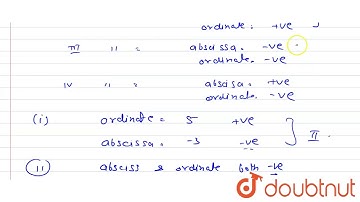 ordinate = +ve
III " = abscissa = -ve
ordinate = -ve
IV " = abscisa = +ve
ordinate = -ve
(i) ordinate = 5 +ve
abscissa = -3 -ve } II
(ii) absciss & ordinate both -ve
doubtnut